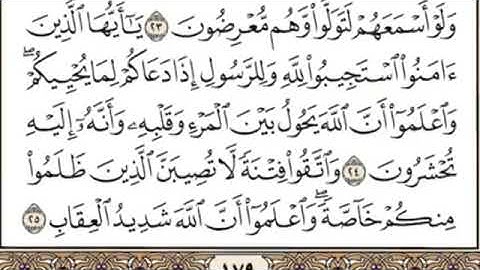 وَلَوۡ أَسۡمَعَهُمۡ لَتَوَلَّواْ وَّهُم مُّعۡرِضُونَ ٢٣ يَٰٓأَيُّهَا ٱلَّذِينَ
ءَامَنُواْ ٱسۡتَجِيبُواْ لِلَّهِ وَلِلرَّسُولِ إِذَا دَعَاكُمۡ لِمَا يُحۡيِيكُمۡۖ
وَٱعۡلَمُوٓاْ أَنَّ ٱللَّهَ يَحُولُ بَيۡنَ ٱلۡمَرۡءِ وَقَلۡبِهِۦ وَأَنَّهُۥٓ إِلَيۡهِ
تُحۡشَرُونَ ٢٤ وَٱتَّقُواْ فِتۡنَةٗ لَّا تُصِيبَنَّ ٱلَّذِينَ ظَلَمُواْ
مِنكُمۡ خَآصَّةٗۖ وَٱعۡلَمُوٓاْ أَنَّ ٱللَّهَ شَدِيدُ ٱلۡعِقَابِ ٢٥
١٧٩